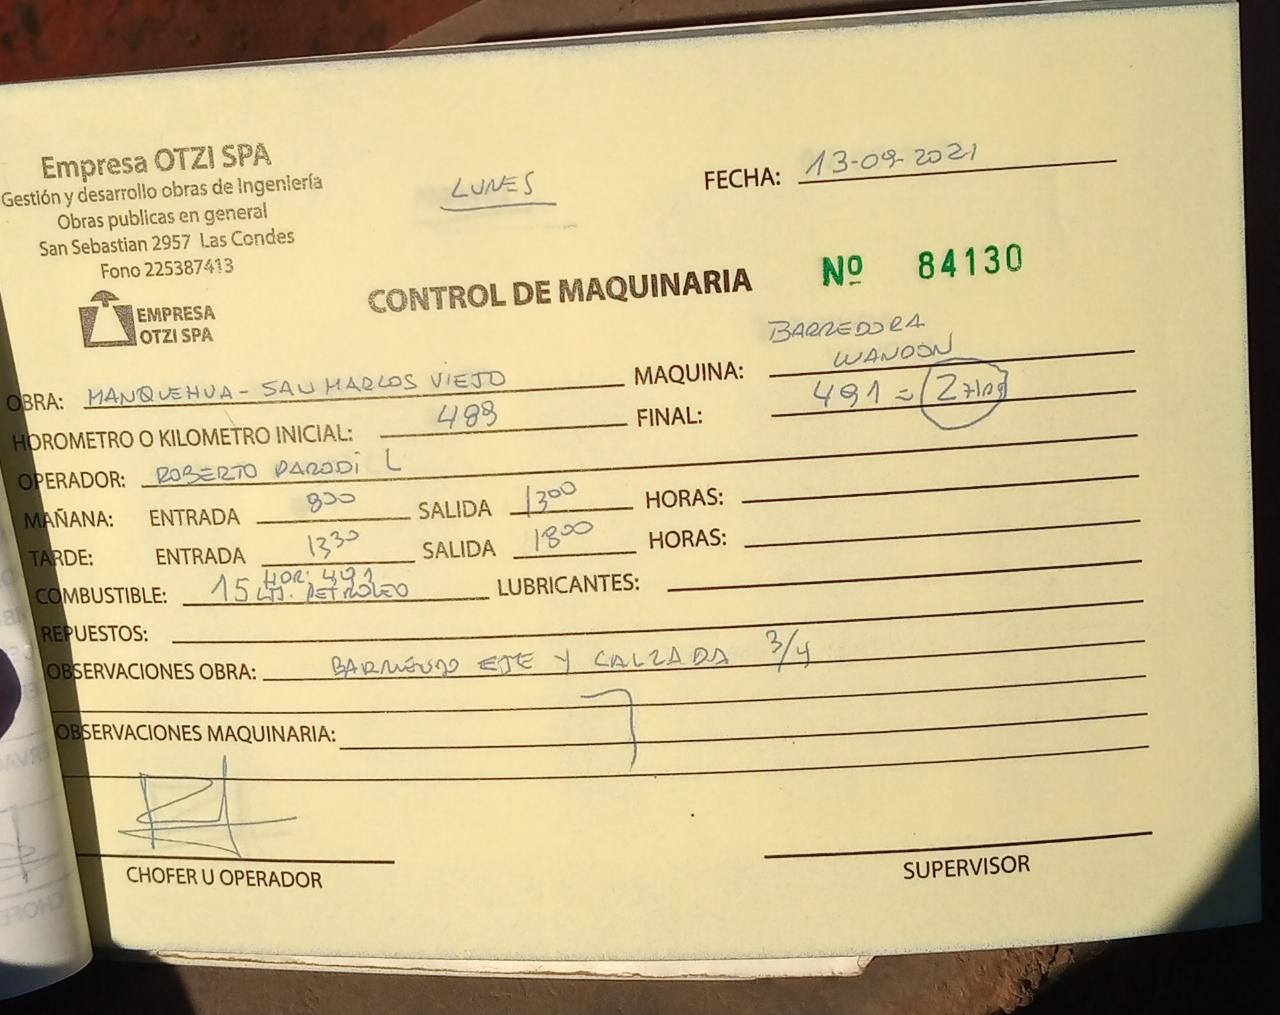 Empresa OTZI SPA
Gestión y desarrollo obras de Ingeniería
Obras publicas en general
San Sebastian 2957 Las Condes
Fono 225387413
EMPRESA
OTZI SPA
LUNES
FECHA: 13-09-2021
CONTROL DE MAQUINARIA
Nº 84130
OBRA: MANQUEHUA - SAN MARCOS VIEJO
MAQUINA: BARREDORA
WANDON
HOROMETRO O KILOMETRO INICIAL: 489
FINAL: 491 = 2
OPERADOR: ROBERTO PARODI L
MAÑANA: ENTRADA 800 SALIDA 1300 HORAS:
TARDE: ENTRADA 1330 SALIDA 1800 HORAS:
HOR: 491
COMBUSTIBLE: 15 LTS. PETROLEO LUBRICANTES:
REPUESTOS:
OBSERVACIONES OBRA: BARRIENDO EJE Y CALZADA 3/4
OBSERVACIONES MAQUINARIA:
CHOFER U OPERADOR
SUPERVISOR